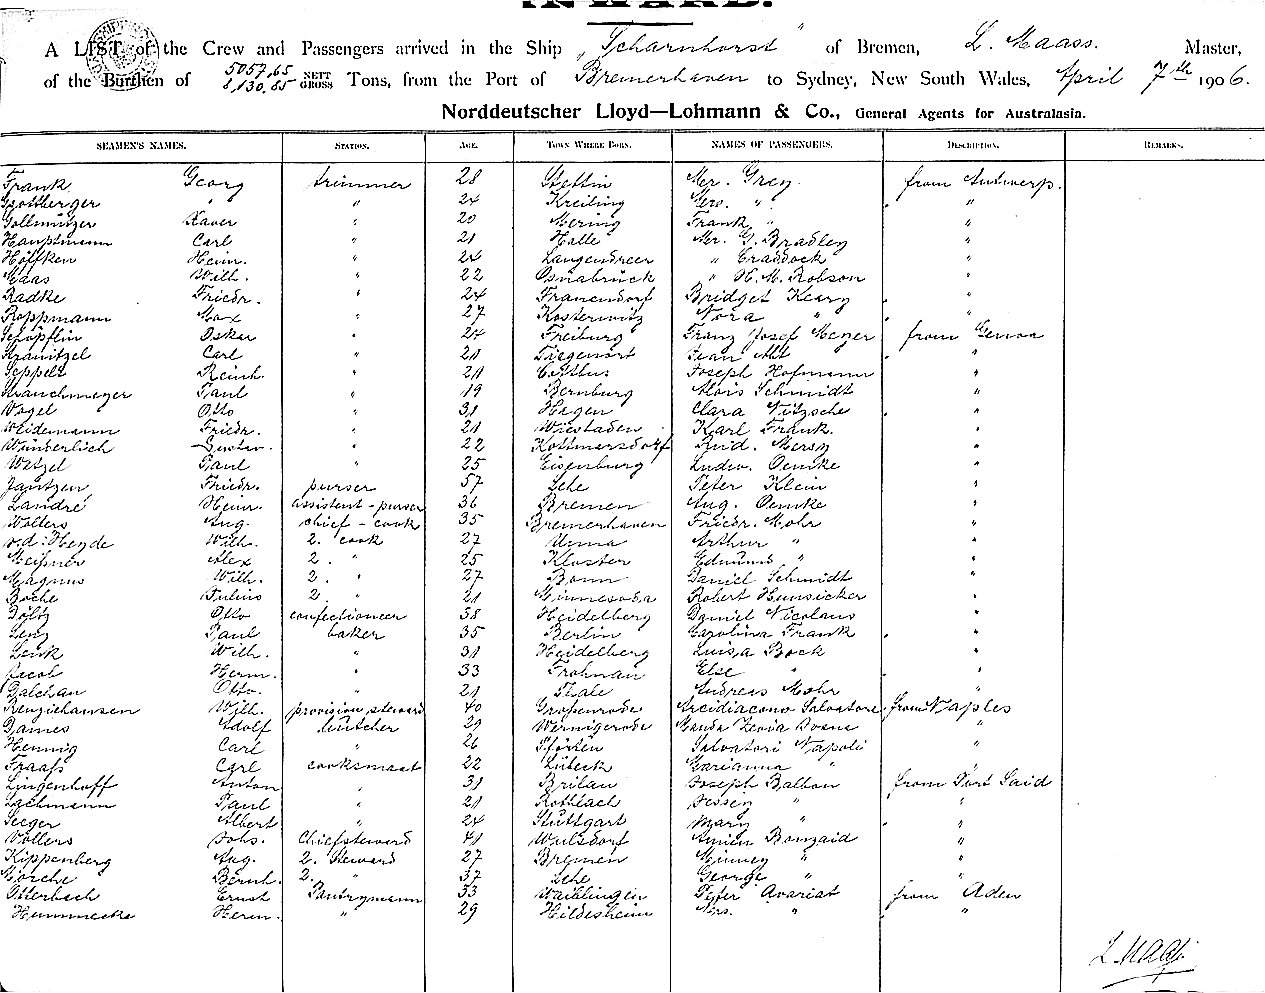 INWARD.
A LIST of the Crew and Passengers arrived in the Ship "Scharnhorst" of Bremen, L. Maass. Master,
of the Burthen of 5057,65 NETT 8,130,85 GROSS Tons, from the Port of Bremerhaven to Sydney, New South Wales, April 7th 1906.
Norddeutscher Lloyd—Lohmann & Co., General Agents for Australasia.
SEAMEN'S NAMES. STATION. AGE. TOWN WHERE BORN. NAMES OF PASSENGERS. DESCRIPTION. REMARKS.
Frank Georg trimmer 28 Stettin Mr. Grey from Antwerp.
" " 24 Kreiling Mrs. " "
Xaver " 20 Mering Frank " "
Hauptmann Carl " 21 Halle Mr. G. Bradley "
Höffken Heinr. " 24 Langendreer " Craddock "
Maas Wilh. " 22 Osnabrück " H. M. Robson "
Radke Friedr. " 24 Frauendorf Bridget Keary "
Roppmann Max " 27 Kosterwitz Nora " "
Schöpflin Oskar " 24 Freiburg Franz Josef Meyer from Genoa
Carl " 21 Tiegenort Jean Alt "
Seppelt Reinh. " 21 Cottbus Joseph Hofmann "
Strauchmeyer Paul " 19 Bernburg Alois Schmidt "
Vogel Otto " 31 Hagen Clara Nitzsche "
Weidemann Friedr. " 21 Wiesbaden Karl Frank. "
Wunderlich Gustav. " 22 Kottmarsdorf Rud. "
Wetzel Paul " 25 Eisenburg Ludw. Oemke "
Jantzen Friedr. purser 57 Lehe Peter Klein "
Landré Heinr. assistent-purser 36 Bremen Aug. Oemke "
Wollers Aug. chief-cook 35 Bremerhaven Friedr. Mohr "
v.d. Heyde Wilh. 2. cook 27 Unna Arthur " "
Meißner Alex 2. " 25 Kloster Edmund " "
Magnus Wilh. 2. " 27 Bonn Daniel Schmidt "
Boche Julius 2. " 21 Robert Hunsicker "
Otto confectioneer 38 Heidelberg Daniel Nicolaus "
Lenz Paul baker 35 Berlin Carolina Frank "
Lenk Wilh. " 31 Heidelberg Luisa Bock "
Jacob Herm. " 33 Frohnau Else " "
Otto. " 21 Thale Andreas Mohr "
Wilh. provision steward 40 Großenrode Arcidiacono Salvatore from Naples
Dames Adolf butcher 29 Wernigerode "
Hennig Carl " 26 Pförten Salvatori Napoli "
Fraaß Carl cooksmaat 22 Lübeck Garianna " "
Lingenhoff Anton " 31 Brilon Joseph Balbon from Port Said
Lachmann Paul " 21 Rothlach Jessey " "
Seeger Albert " 24 Stuttgart Mary " "
Vollers Johs. Chiefsteward 41 Wulsdorf Amien Bonzaid "
Kippenberg Aug. 2. Steward 27 Bremen Minney " "
Bernh. 2. " 37 Lehe George " "
Otterbach Ernst Pantrymann 33 Waiblingen Peter Avariat from Aden
Hennecke Herm. " 29 Hildesheim Mrs. " "
L. Maass